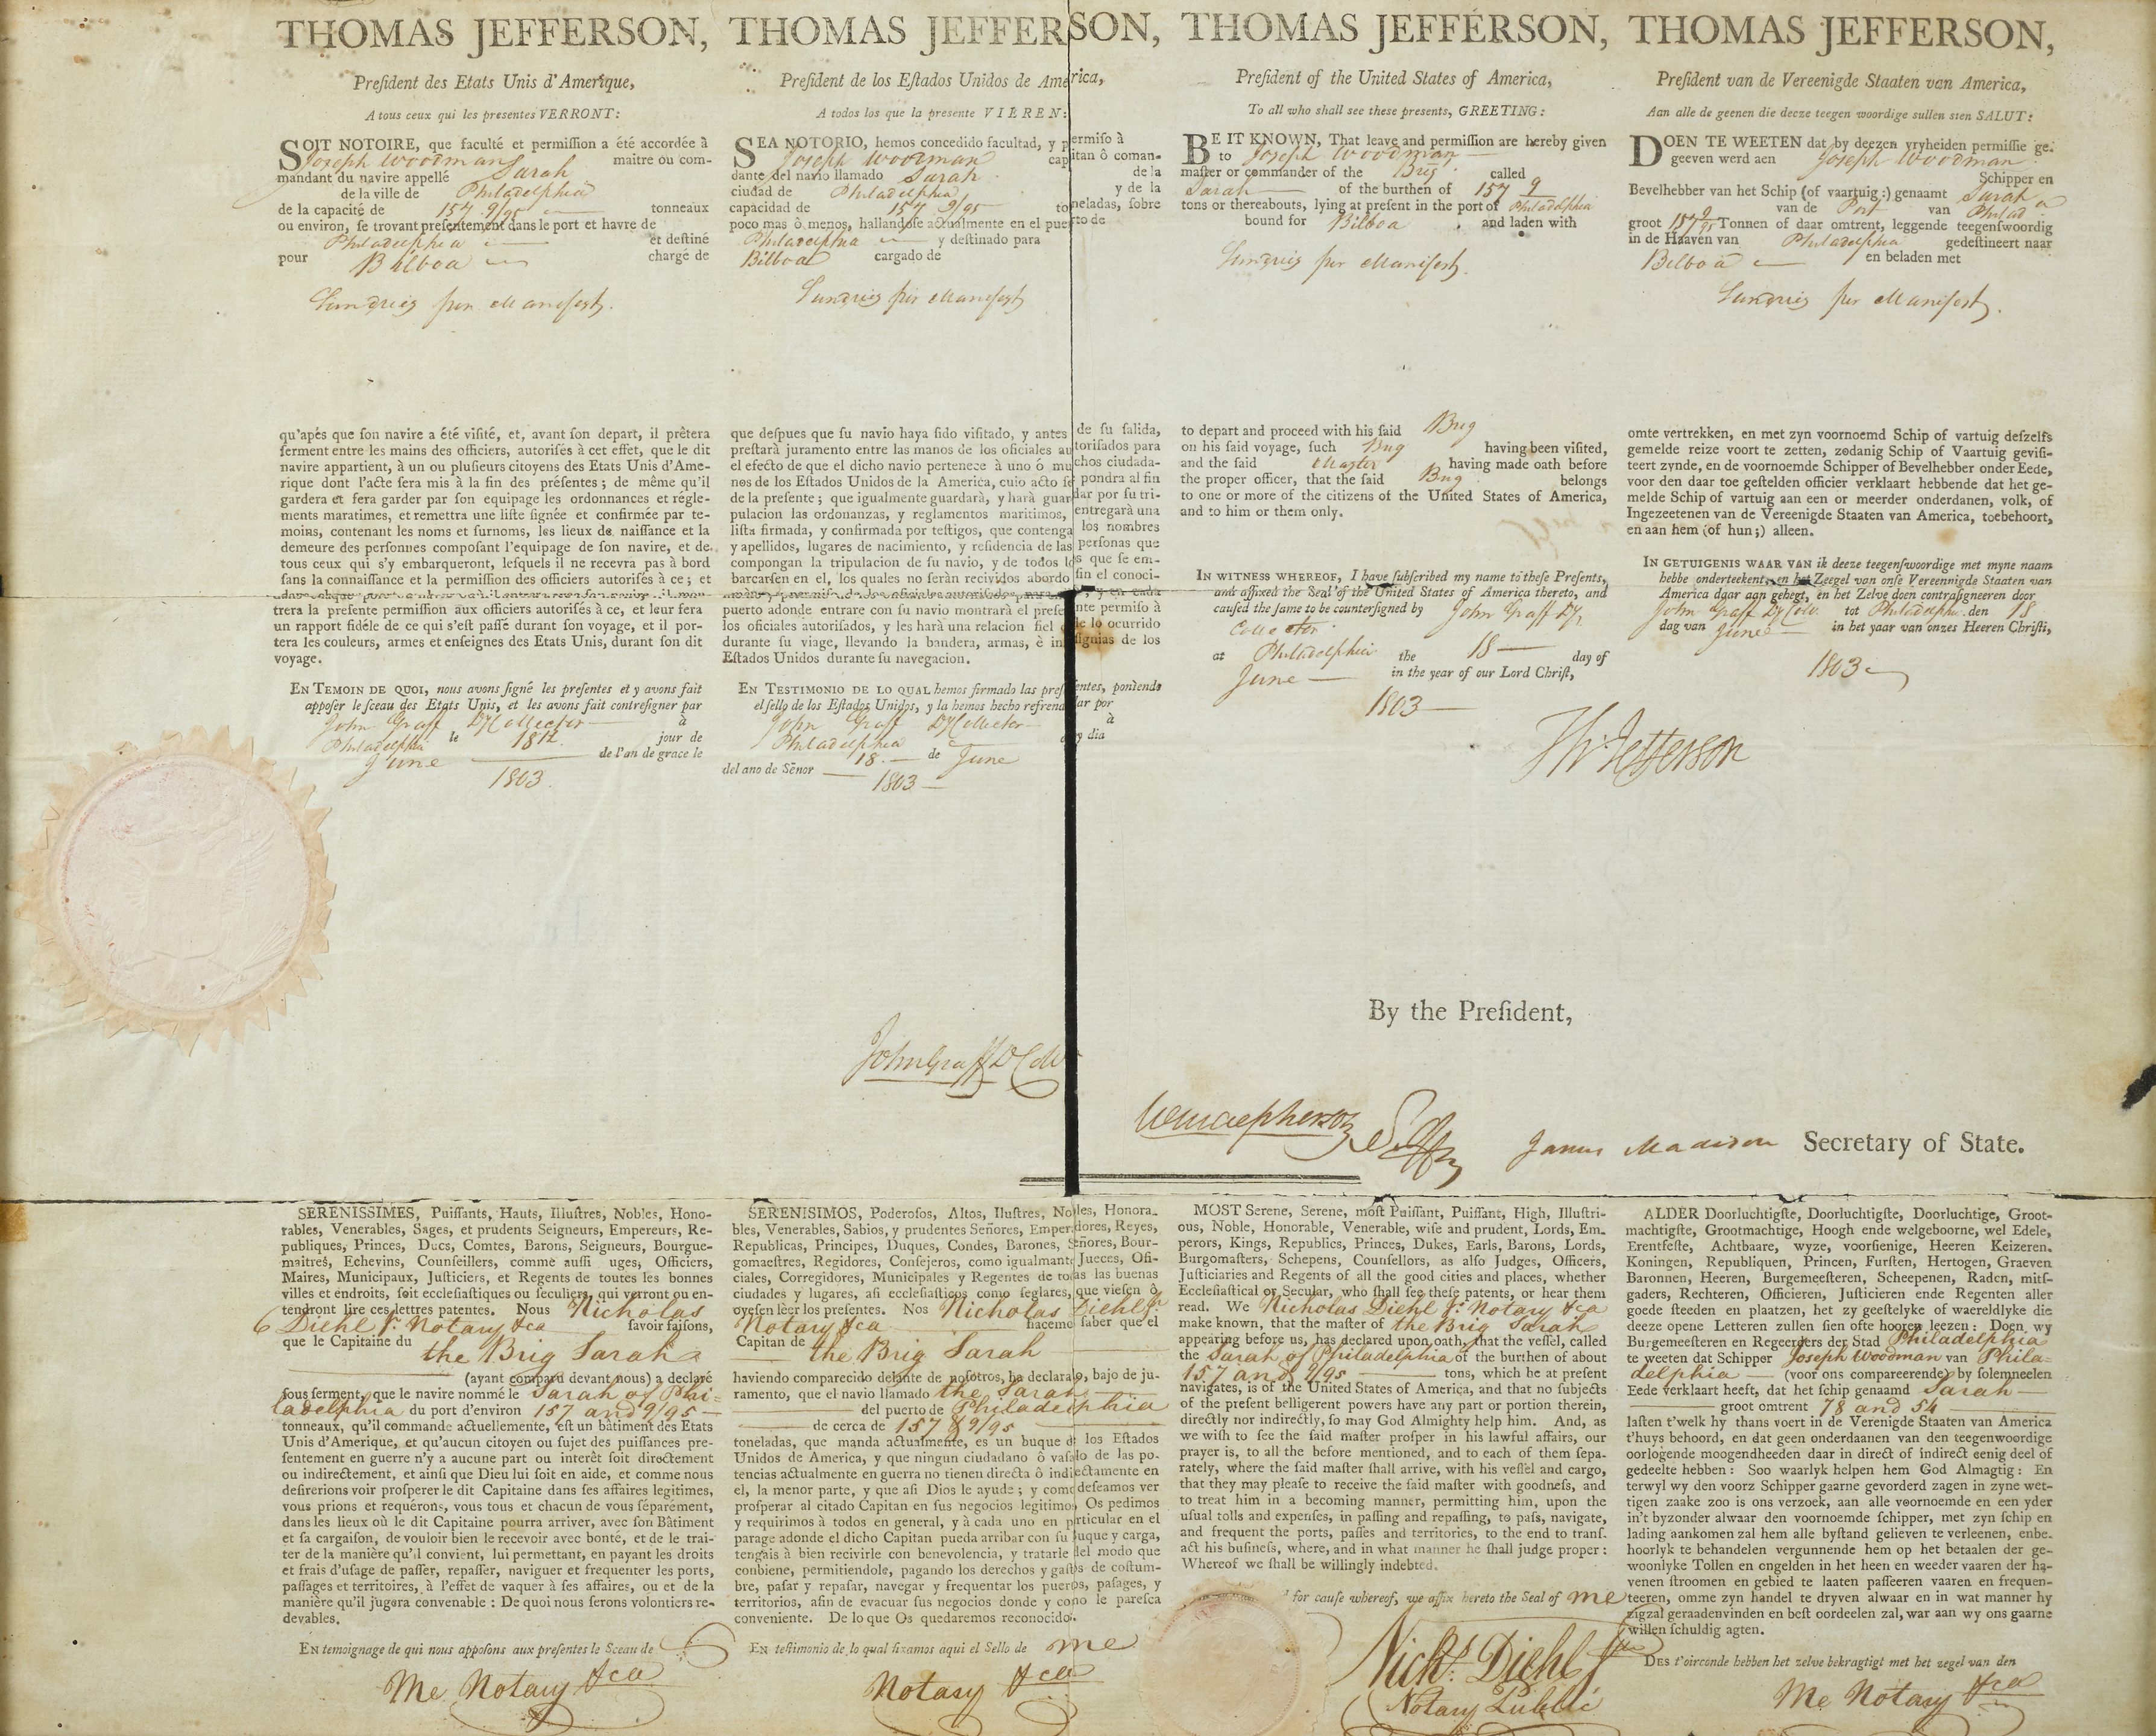 THOMAS JEFFERSON,
President des Etats Unis d'Amerique,
A tous ceux qui les presentes VERRONT:
SOIT NOTOIRE, que faculté et permission a été accordée à
Joseph Woodman maitre ou com-
mandant du navire appellé Sarah
de la ville de Philadelphia
de la capacité de 157 9/95 tonneaux
ou environ, se trovant presentement dans le port et havre de
Philadelphia et destiné
pour Bilboa chargé de
Sundries per Manifest.
qu'apés que son navire a été visité, et, avant son depart, il prêtera
serment entre les mains des officiers, autorisés à cet effet, que le dit
navire appartient, à un ou plusieurs citoyens des Etats Unis d'Ame-
rique dont l'acte sera mis à la fin des présentes; de même qu'il
gardera et fera garder par son equipage les ordonnances et régle-
ments maratimes, et remettra une liste signée et confirmée par te-
moins, contenant les noms et surnoms, les lieux de naissance et la
demeure des personnes composant l'equipage de son navire, et de
tous ceux qui s'y embarqueront, lesquels il ne recevra pas à bord
sans la connaissance et la permission des officiers autorisés à ce; et
trera la presente permission aux officiers autorisés à ce, et leur fera
un rapport fidéle de ce qui s'est passé durant son voyage, et il por-
tera les couleurs, armes et enseignes des Etats Unis, durant son dit
voyage.
EN TEMOIN DE QUOI, nous avons signé les presentes et y avons fait
apposer le sceau des Etats Unis, et les avons fait contresigner par
John Graff Dy Collector à
Philadelphia le 18th jour de
June de l'an de grace le
1803
THOMAS JEFFERSON,
President de los Estados Unidos de America,
A todos los que la presente VIEREN:
SEA NOTORIO, hemos concedido facultad, y permiso à
Joseph Woodman capitan ô coman-
dante del navio llamado Sarah de la
ciudad de Philadelphia y de la
capacidad de 157 9/95 toneladas, sobre
poco mas ô menos, hallandose actualmente en el puerto de
Philadelphia y destinado para
Bilboa cargado de
Sundries per Manifest
que despues que su navio haya sido visitado, y antes de su salida,
prestará juramento entre las manos de los oficiales autorisados para
el efecto de que el dicho navio pertenece à uno ó muchos ciudada-
nos de los Estados Unidos de la America, cuio acto se pondra al fin
de la presente; que igualmente guardará, y hará guardar por su tri-
pulacion las ordonanzas, y reglamentos maritimos, entregará una
lista firmada, y confirmada por testigos, que contenga los nombres
y apellidos, lugares de nacimiento, y residencia de las personas que
compongan la tripulacion de su navio, y de todos los que se em-
barcarsen en el, los quales no seràn recividos abordo sin el conoci-
puerto adonde entrare con su navio montrará el presente permiso à
los oficiales autorisados, y les hará una relacion fiel de lo ocurrido
durante su viage, llevando la bandera, armas, è insignias de los
Estados Unidos durante su navegacion.
EN TESTIMONIO DE LO QUAL hemos firmado las presentes, poniendo
el sello de los Estados Unidos, y la hemos hecho refrendar por
John Graff Dy Collector à
Philadelphia dia
18 de June
del ano de Señor 1803
THOMAS JEFFERSON,
President of the United States of America,
To all who shall see these presents, GREETING:
BE IT KNOWN, That leave and permission are hereby given
to Joseph Woodman
master or commander of the Brig called
Sarah of the burthen of 157 9
tons or thereabouts, lying at present in the port of Philadelphia
bound for Bilboa and laden with
Sundries per Manifest.
to depart and proceed with his said Brig
on his said voyage, such Brig having been visited,
and the said Master having made oath before
the proper officer, that the said Brig belongs
to one or more of the citizens of the United States of America,
and to him or them only.
IN WITNESS WHEREOF, I have subscribed my name to these Presents,
and affixed the Seal of the United States of America thereto, and
caused the same to be countersigned by John Graff Dy
Collector
at Philadelphia the 18 day of
June in the year of our Lord Christ,
1803
THOMAS JEFFERSON,
President van de Vereenigde Staaten van America,
Aan alle de geenen die deeze teegen woordige sullen sien SALUT:
DOEN TE WEETEN dat by deezen vryheiden permissie ge-
geeven werd aen Joseph Woodman
Schipper en
Bevelhebber van het Schip (of vaartuig:) genaamt Sarah
van de Port van Philad
groot 157 9/95 Tonnen of daar omtrent, leggende teegenswoordig
in de Haaven van Philadelphia gedestineert naar
Bilboa en beladen met
Sundries per Manifest.
omte vertrekken, en met zyn voornoemd Schip of vartuig deszelfs
gemelde reize voort te zetten, zodanig Schip of Vaartuig gevisi-
teert zynde, en de voornoemde Schipper of Bevelhebber onder Eede,
voor den daar toe gestelden officier verklaart hebbende dat het ge-
melde Schip of vartuig aan een or meerder onderdanen, volk, of
Ingezeetenen van de Vereenigde Staaten van America, toebehoort,
en aan hem (of hun;) alleen.
IN GETUIGENIS WAAR VAN ik deeze teegenswoordige met myne naam
hebbe onderteekent, en het Zeegel van onse Vereennigde Staaten van
America daar aan gehegt, en het Zelve doen contrasigneeren door
John Graff Dy Col. tot Philadelphi. den 18
dag van June in het yaar van onzes Heeren Christi,
1803
Th: Jefferson
By the President,
John Graff D Col
Wm Macpherson
James Madison Secretary of State.
SERENISSIMES, Puissants, Hauts, Illustres, Nobles, Hono-
rables, Venerables, Sages, et prudents Seigneurs, Empereurs, Re-
publiques, Princes, Ducs, Comtes, Barons, Seigneurs, Bourgue-
maitres, Echevins, Counseillers, comme aussi uges, Officiers,
Maires, Municipaux, Justiciers, et Regents de toutes les bonnes
villes et endroits, soit ecclesiastiques ou seculiers, qui verront ou en-
tendront lire ces lettres patentes. Nous Nicholas
Diehl Jr. Notary &ca savoir faisons,
que le Capitaine du the Brig Sarah
(ayant comparu devant nous) a declaré
sous serment, que le navire nommé le Sarah of Phi-
ladelphia du port d'environ 157 and 9/95
tonneaux, qu'il commande actuellemente, est un bâtiment des Etats
Unis d'Amerique, et qu'aucun citoyen ou sujet des puissances pre-
sentement en guerre n'y a aucune part ou interêt soit directement
ou indirectement, et ainsi que Dieu lui soit en aide, et comme nous
desirerions voir prosperer le dit Capitaine dans ses affaires legitimes,
vous prions et requérons, vous tous et chacun de vous séparément,
dans les lieux où le dit Capitaine pourra arriver, avec son Bâtiment
et sa cargaison, de vouloir bien le recevoir avec bonté, et de le trai-
ter de la manière qu'il convient, lui permettant, en payant les droits
et frais d'usage de passer, repasser, naviguer et frequenter les ports,
passages et territoires, à l'effet de vaquer à ses affaires, ou et de la
manière qu'il jugera convenable: De quoi nous serons volontiers re-
devables.
EN temoignage de qui nous apposons aux presentes le Sceau de
Me Notary &ca
SERENISIMOS, Poderosos, Altos, Ilustres, Nobles, Honora-
bles, Venerables, Sabios, y prudentes Señores, Emperadores, Reyes,
Republicas, Principes, Duques, Condes, Barones, Señores, Bour-
gomaestres, Regidores, Consejeros, como igualmante Jueces, Ofi-
ciales, Corregidores, Municipales y Regentes de todas las buenas
ciudades y lugares, asi ecclesiasticos como seglares, que viesen ò
oyesen lèer los presentes. Nos Nicholas Diehl Jr
Notary &ca hacemo saber que el
Capitan de the Brig Sarah
haviendo comparecido delante de nosotros, ha declarado, bajo de ju-
ramento, que el navio llamado the Sarah
del puerto de Philadelphia
de cerca de 157 & 9/95
toneladas, que manda actualmente, es un buque de los Estados
Unidos de America, y que ningun ciudadano ô vasalo de las po-
tencias actualmente en guerra no tienen directa ô indirectamente en
el, la menor parte, y que asi Dios le ayude; y como deseamos ver
prosperar al citado Capitan en sus negocios legitimos, Os pedimos
y requirimos à todos en general, y à cada uno en particular en el
parage adonde el dicho Capitan pueda arribar con su buque y carga,
tengais à bien recivirle con benevolencia, y tratarle del modo que
conbiene, permitiendole, pagando los derechos y gastos de costum-
bre, pasar y repasar, navegar y frequentar los puertos, pasages, y
territorios, afin de evacuar sus negocios donde y como le paresca
conveniente. De lo que Os quedaremos reconocidos.
EN testimonio de lo qual fixamos aqui el Sello de me
Notary &ca
MOST Serene, Serene, most Puissant, Puissant, High, Illustri-
ous, Noble, Honorable, Venerable, wise and prudent, Lords, Em-
perors, Kings, Republics, Princes, Dukes, Earls, Barons, Lords,
Burgomasters, Schepens, Counsellors, as also Judges, Officers,
Justiciaries and Regents of all the good cities and places, whether
Ecclesiastical or Secular, who shall see these patents, or hear them
read. We Nicholas Diehl Jr. Notary &ca
make known, that the master of the Brig Sarah
appearing before us, has declared upon oath, that the vessel, called
the Sarah of Philadelphia of the burthen of about
157 and 9/95 tons, which be at present
navigates, is of the United States of America, and that no subjects
of the present belligerent powers have any part or portion therein,
directly nor indirectly, so may God Almighty help him. And, as
we wish to see the said master prosper in his lawful affairs, our
prayer is, to all the before mentioned, and to each of them sepa-
rately, where the said master shall arrive, with his vessel and cargo,
that they may please to receive the said master with goodness, and
to treat him in a becoming manner, permitting him, upon the
usual tolls and expenses, in passing and repassing, to pass, navigate,
and frequent the ports, passes and territories, to the end to trans-
act his business, where, and in what manner he shall judge proper:
Whereof we shall be willingly indebted.
for cause whereof, we affix hereto the Seal of me
Nichs. Diehl Jr
Notary Public
ALDER Doorluchtigste, Doorluchtigste, Doorluchtige, Groot-
machtigste, Grootmachtige, Hoogh ende welgeboorne, wel Edele,
Erentfeste, Achtbaare, wyze, voorsienige, Heeren Keizeren,
Koningen, Republiquen, Princen, Fursten, Hertogen, Graeven
Baronnen, Heeren, Burgemeesteren, Scheepenen, Raden, mits-
gaders, Rechteren, Officieren, Justicieren ende Regenten aller
goede steeden en plaatzen, het zy geestelyke of waereldlyke die
deeze opene Letteren zullen sien ofte hooren leezen: Doen wy
Burgemeesteren en Regeerders der Stad Philadelphia
te weeten dat Schipper Joseph Woodman van Phila-
delphia (voor ons compareerende) by solemneelen
Eede verklaart heeft, dat het schip genaamd Sarah
groot omtrent 78 and 54
lasten t'welk hy thans voert in de Verenigde Staaten van America
t'huys behoord, en dat geen onderdaanen van den teegenwoordige
oorlogende moogendheeden daar in direct of indirect eenig deel of
gedeelte hebben: Soo waarlyk helpen hem God Almagtig: En
terwyl wy den voorz Schipper gaarne gevorderd zagen in zyne wet-
tigen zaake zoo is ons verzoek, aan alle voornoemde en een yder
in't byzonder alwaar den voornoemde schipper, met zyn schip en
lading aankomen zal hem alle bystand gelieven te verleenen, enbe-
hoorlyk te behandelen vergunnende hem op het betaalen der ge-
woonlyke Tollen en ongelden in het heen en weeder vaaren der ha-
venen stroomen en gebied te laaten passeeren vaaren en frequen-
teeren, omme zyn handel te dryven alwaar en in wat manner hy
zigzal geraadenvinden en best oordeelen zal, war aan wy ons gaarne
willen schuldig agten.
DES t'oirconde hebben het zelve bekragtigt met het zegel van den
Me Notary &ca